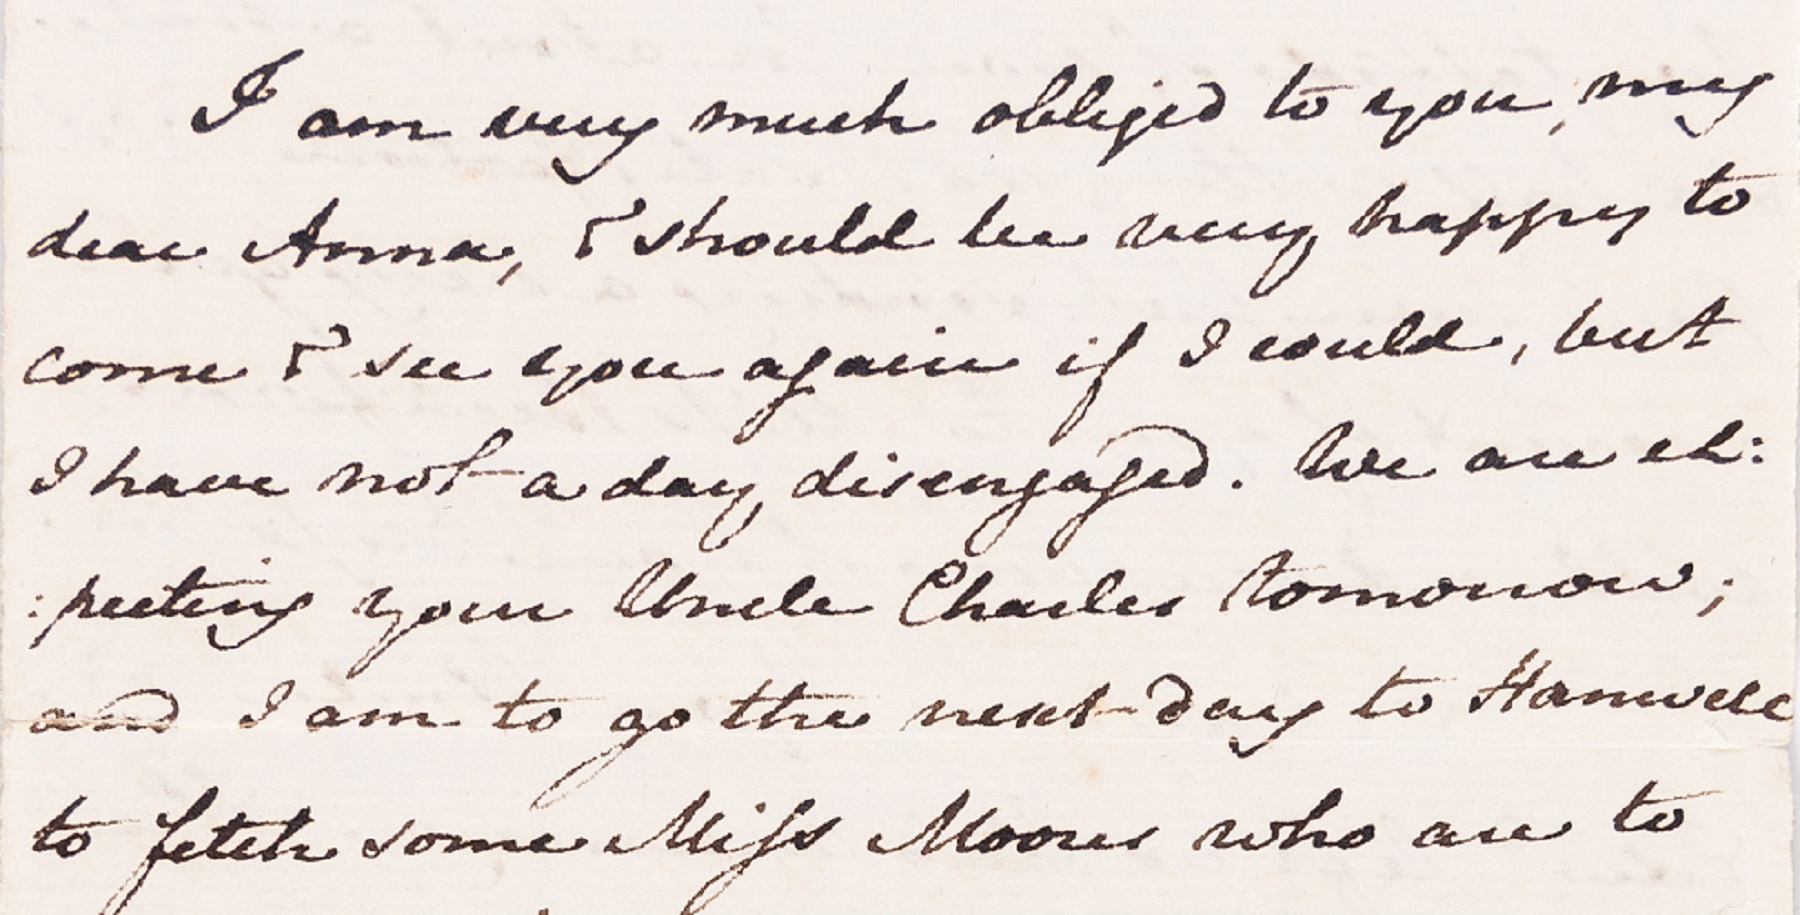 I am very much obliged to you, my
dear Anna, & should be very happy to
come & see you again if I could, but
I have not a day disengaged. We are ex:
:pecting your Uncle Charles tomorrow;
and I am to go the next day to Hanwell
to fetch some Miss Moores who are to